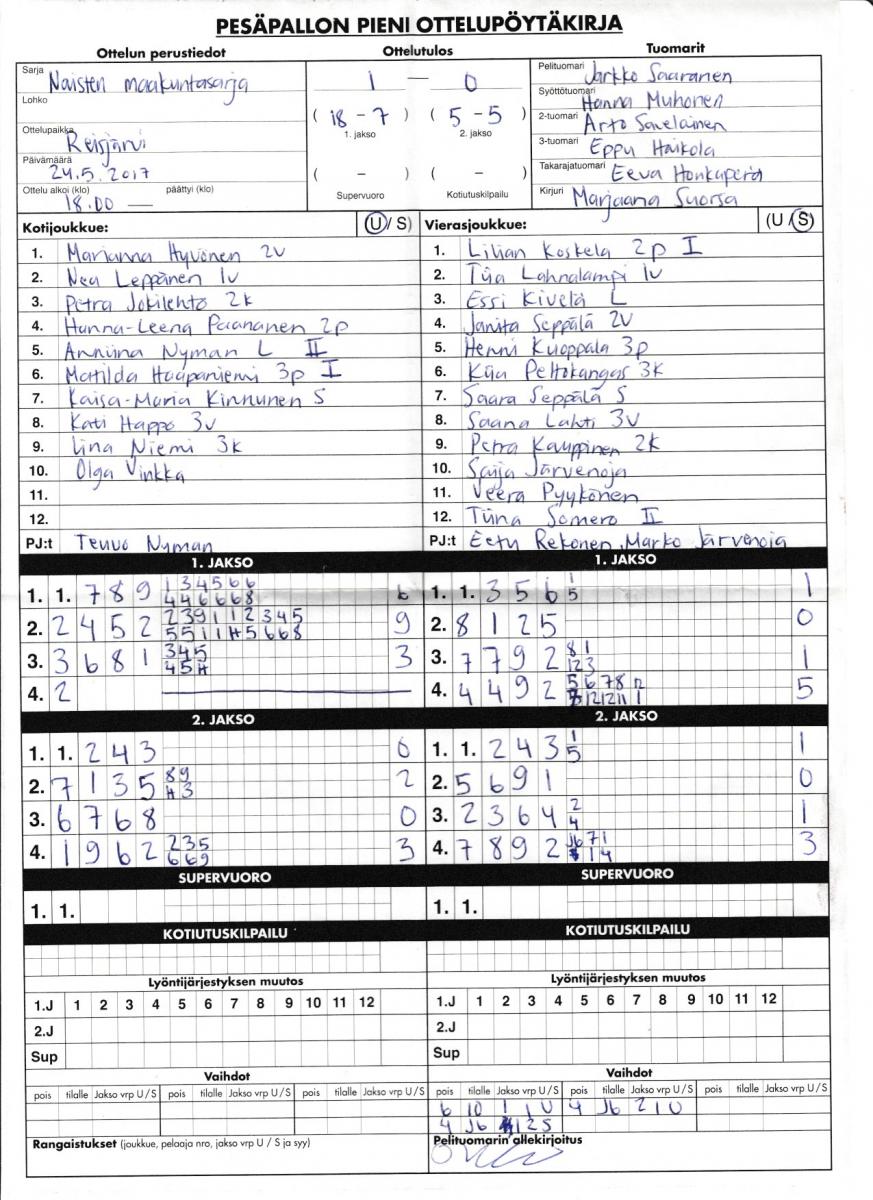 PESÄPALLON PIENI OTTELUPÖYTÄKIRJA
Ottelun perustiedot
Sarja
Naisten maakuntasarja
Lohko
Ottelupaikka
Reisjärvi
Päivämäärä
24.5.2017
Ottelu alkoi (klo) päättyi (klo)
18.00 —
Ottelutulos
1 — 0
( 18 - 7 ) ( 5 - 5 )
1. jakso 2. jakso
( - ) ( - )
Supervuoro Kotiutuskilpailu
Tuomarit
Pelituomari Jarkko Saaranen
Syöttötuomari Hanna Muhonen
2-tuomari Arto Savelainen
3-tuomari Eppu Haikola
Takarajatuomari Eeva Honkaperä
Kirjuri Marjaana Suorsa
Kotijoukkue: (U / S)
1. Marianna Hyvönen 2v
2. Nea Leppänen 1v
3. Petra Jokilehto 2k
4. Hanna-Leena Paananen 2p
5. Anniina Nyman L II
6. Matilda Haapaniemi 3p I
7. Kaisa-Maria Kinnunen S
8. Kati Happo 3v
9. Iina Niemi 3k
10. Olga Vinkka
11.
12.
PJ:t Teuvo Nyman
Vierasjoukkue: (U / S)
1. Lilian Koskela 2p I
2. Tiia Lahnalampi 1v
3. Essi Kivelä L
4. Janita Seppälä 2v
5. Henni Kuoppala 3p
6. Kiia Peltokangas 3k
7. Saara Seppälä S
8. Saana Lahti 3v
9. Petra Kauppinen 2k
10. Saija Järvenoja
11. Veera Pyykönen
12. Tiina Somero II
PJ:t Eetu Rekonen, Marko Järvenoja
1. JAKSO
1. 1. 7 8 9 1 3 4 5 6 6 6
4 4 6 6 6 8
2. 2 4 5 2 2 3 9 1 1 2 3 4 5 9
5 5 1 1 H 5 6 6 8
3. 3 6 8 1 3 4 5 3
4 5 H
4. 2
1. JAKSO
1. 1. 3 5 6 1 1
5
2. 8 1 2 5 0
3. 7 7 9 2 8 1 1
12 3
4. 4 4 9 2 5 6 7 8 12 5
12 12 11 1
2. JAKSO
1. 1. 2 4 3 0
2. 7 1 3 5 8 9 2
H 3
3. 6 7 6 8 0
4. 1 9 6 2 2 3 5 3
6 6 9
2. JAKSO
1. 1. 2 4 3 1 1
5
2. 5 6 9 1 0
3. 2 3 6 4 2 1
4
4. 7 8 9 2 J6 7 1 3
1 4
SUPERVUORO
1. 1.
SUPERVUORO
1. 1.
KOTIUTUSKILPAILU
KOTIUTUSKILPAILU
Lyöntijärjestyksen muutos
1.J 1 2 3 4 5 6 7 8 9 10 11 12
2.J
Sup
Lyöntijärjestyksen muutos
1.J 1 2 3 4 5 6 7 8 9 10 11 12
2.J
Sup
Vaihdot
pois tilalle Jakso vrp U / S pois tilalle Jakso vrp U / S pois tilalle Jakso vrp U / S
Rangaistukset (joukkue, pelaaja nro, jakso vrp U / S ja syy)
Vaihdot
pois tilalle Jakso vrp U / S pois tilalle Jakso vrp U / S pois tilalle Jakso vrp U / S
6 10 1 1 U 4 J6 2 1 U
4 J6 1 2 S
Pelituomarin allekirjoitus